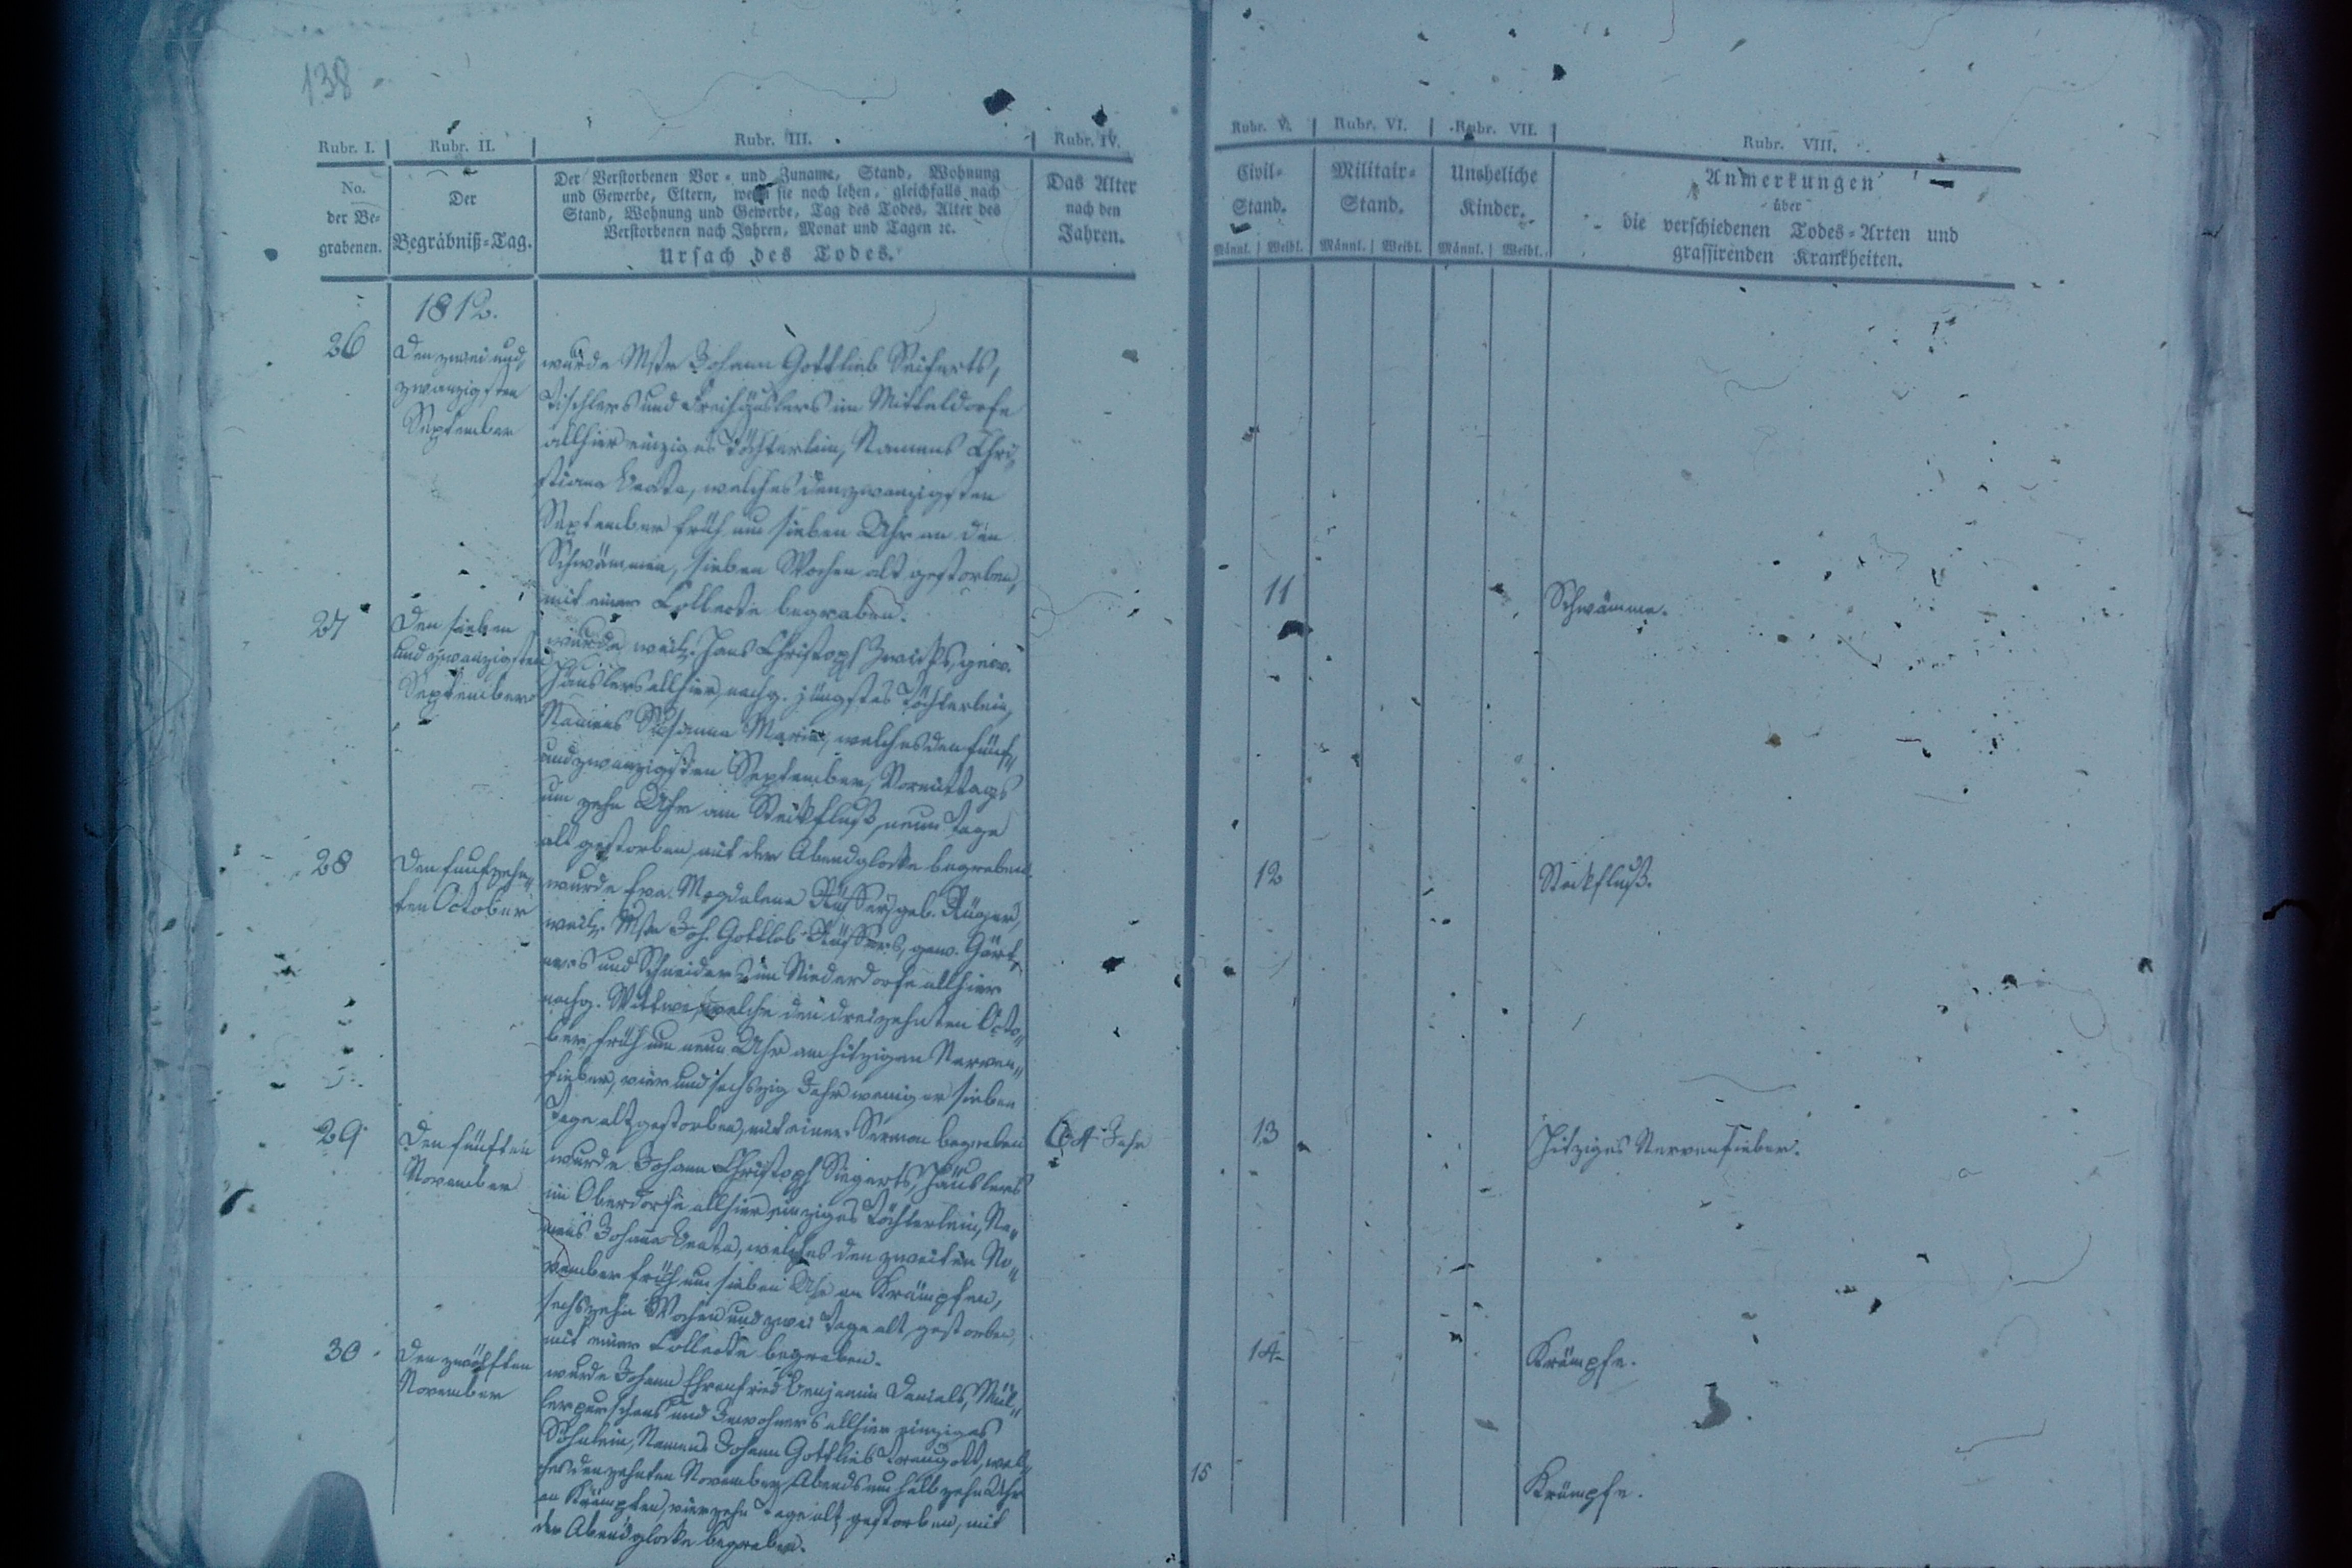 138
Rubr. I. Rubr. II. Rubr. III. Rubr. IV.
No.
der Be-
grabenen.
Der
Begräbniß-Tag.
Der Verstorbenen Vor- und Zuname, Stand, Wohnung
und Gewerbe, Eltern, wenn sie noch leben, gleichfalls nach
Stand, Wohnung und Gewerbe, Tag des Todes, Alter des
Verstorbenen nach Jahren, Monat und Tagen ꝛc.
Ursach des Todes.
Das Alter
nach den
Jahren.
1812.
26
Den zwei und
zwanzigsten
September
wurde Mstr Johann Gottlieb Seiferts,
Tischlers und Freihäuslers im Mitteldorfe
allhier einziges Töchterlein, Namens Chri-
stiana Beata, welches den zwanzigsten
September früh um sieben Uhr an den
Schwämmen, sieben Wochen alt gestorben,
mit einer Collecte begraben.
27
Den sieben
und zwanzigsten
September
wurde weil. Hans Christoph gew.
Häuslers allhier, nachg. jüngstes Töchterlein,
Namens Susanna Maria, welches den fünf
und zwanzigsten September, Vormittags
um zehn Uhr am Steckfluß, neun Tage
alt gestorben, mit der Abendglocke begraben.
28
Den funfzehn-
ten October
wurde Eva Magdalena geb.
weil. Mstr Joh. Gottlob gew. Gärt-
ners und Schneiders im Niederdorfe allhier
nachg. Wittwe, welche den dreizehnten Octo-
ber, früh um neun Uhr am hitzigen Nerven-
fieber, vier und sechszig Jahr weniger sieben
Tage alt gestorben, mit einer Sermon begraben
64 Jahr
29
Den fünften
November
wurde Johann Christoph Siegerts, Häuslers
im Oberdorfe allhier einziges Töchterlein, Na-
mens Johana Beata, welches den zweiten No-
vember früh um sieben Uhr an Krämpfen,
sechszehn Wochen und zwei Tage alt, gestorben,
mit einer Collecte begraben.
30
Den zwölften
November
wurde Johann Ehrenfried Benjamin Daniels, Mül-
lerpurschens und Inwohners allhier einziges
Söhnlein, Namens Johann Gottlieb Traugott, wel-
ches den zehnten November, Abends um halb zehn Uhr
an Krämpfen, vierzehn Tage alt gestorben, mit
der Abendglocke begraben.
Rubr. V. Rubr. VI. Rubr. VII. Rubr. VIII.
Civil-
Stand.
Männl. Weibl.
Militair-
Stand.
Männl. Weibl.
Uneheliche
Kinder.
Männl. Weibl.
Anmerkungen
über
die verschiedenen Todes-Arten und
grassirenden Krankheiten.
11 Schwämme.
12 Steckfluß.
13 Hitziges Nervenfieber.
14 Krämpfe.
15 Krämpfe.